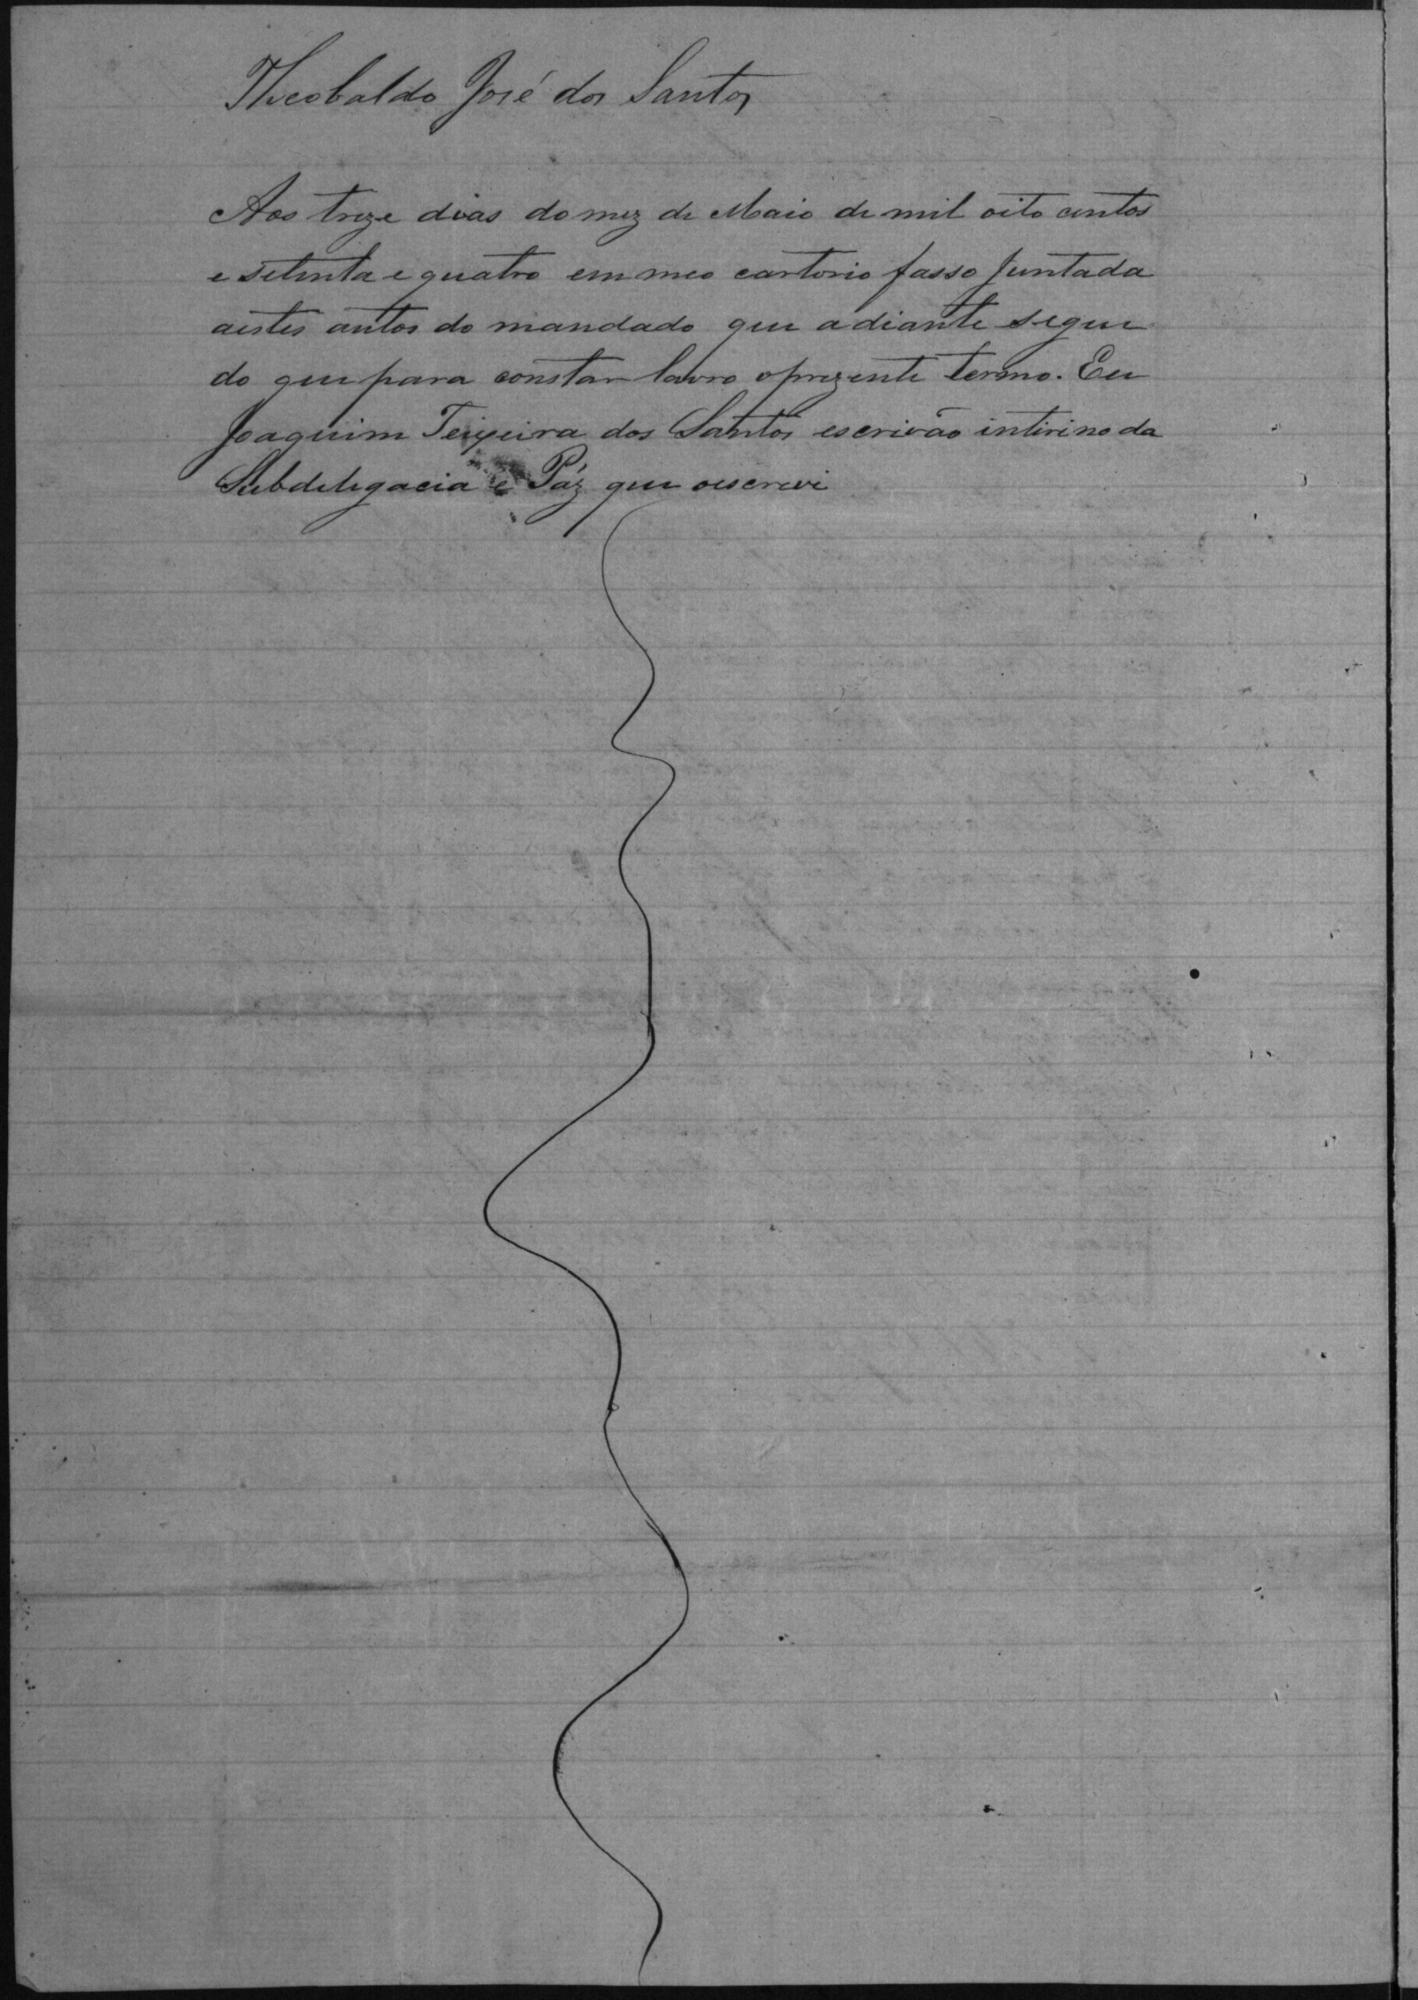 Theobaldo José dos Santos
Aos treze dias do mez de Maio de mil oito centos
e setenta e quatro em meo cartorio fasso Juntada
aestes autos do mandado que adiante segue
do que para constar lavro o prezente termo. Eu
Joaquim Teixeira dos Santos escrivão intirino da
Subdelegacia e Páz que oescrevi